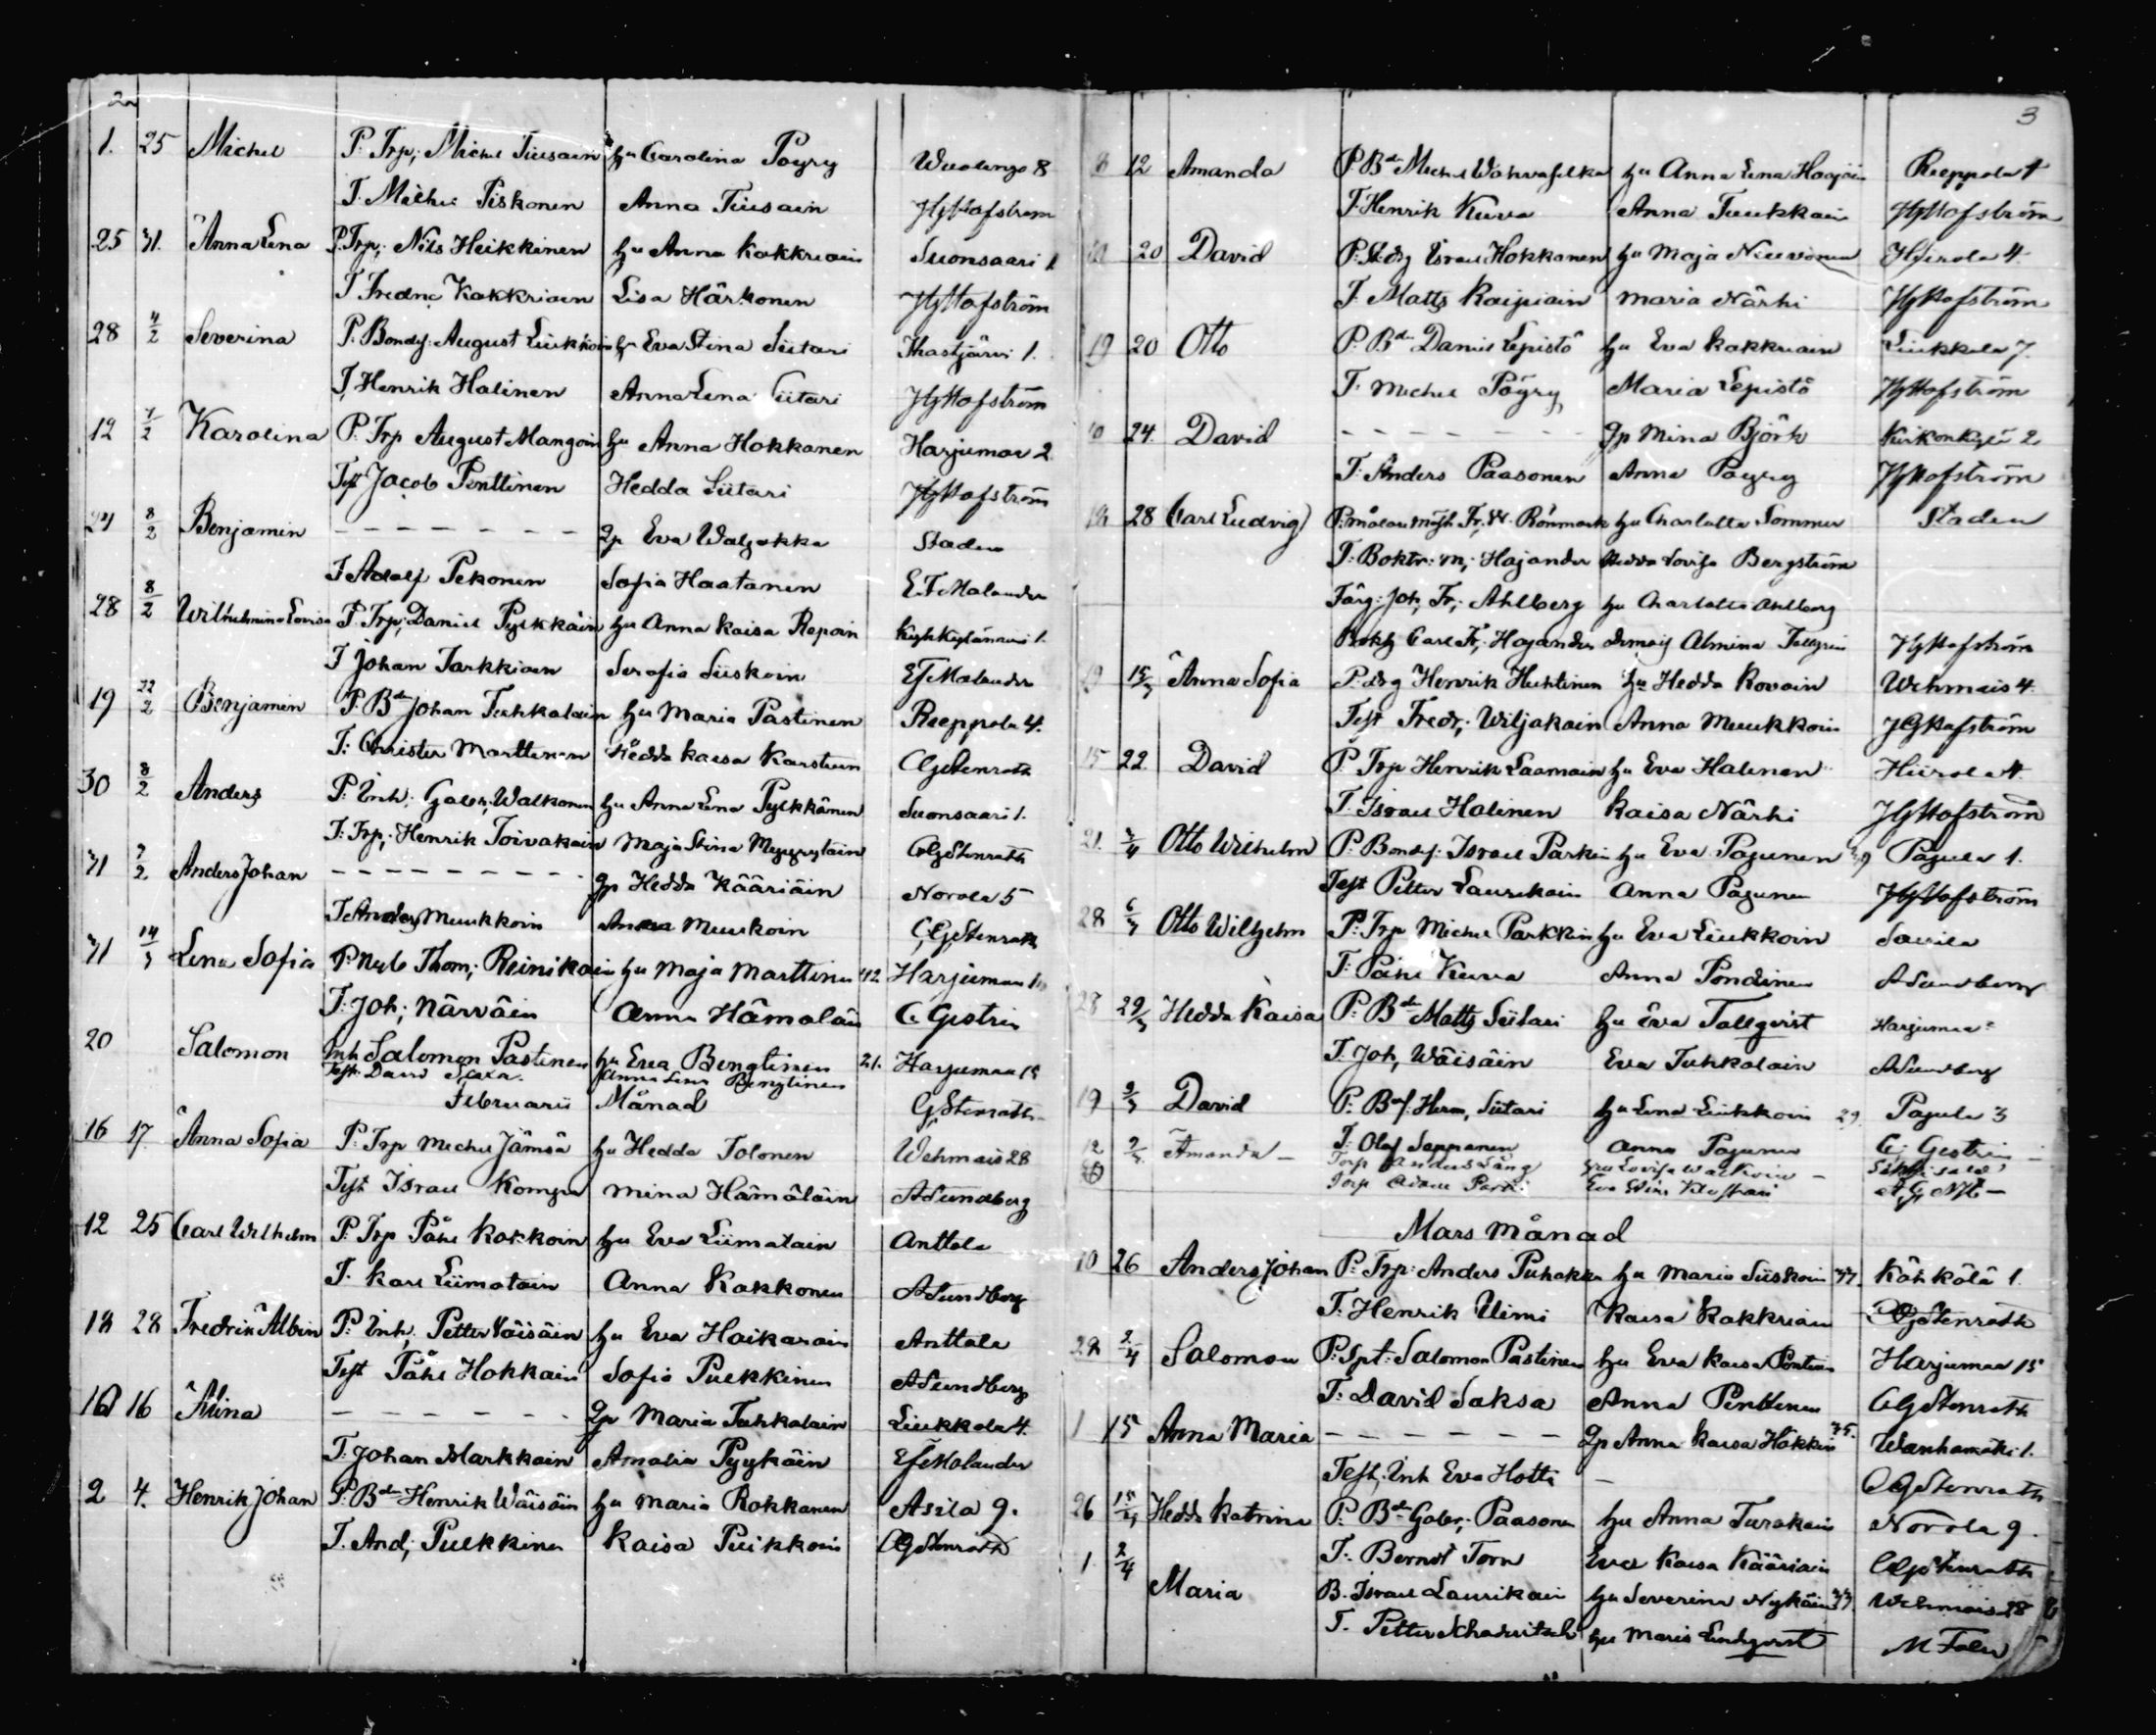 2
1. 25 Michel P. Trp; Michel Tiusain hu Carolina Pöyry Wuolingo 8
T. Michel Piskonen Anna Tiusain HgHofström
25 31. Anna Lena P. Trp; Nils Heikkinen hu Anna Kokkriain Suonsaari 1.
T Fredric Kakkriain Lisa Härkonen HgHofström
28 4/2 Severina P. Bondes: August Liukkoin hu Eva Stina Siitari Ihastjärvi 1.
T. Henrik Halinen Anna Lena Siitari HgHofström
12 7/2 Karolina P. Trp August Mangoin hu Anna Hokkanen Harjumaa 2
Test Jacob Penttinen Hedda Siitari HgHofström
24 8/2 Benjamin - - - - - - - Qp Eva Waljakka Staden
T Adolf Pekonen Sofia Haatanen E.F. Malander
28 8/2 Wilhelmina Lovisa P. Trp; Daniel Pylkkäin hu Anna Kaisa Repoin Kyhkylänniemi 1.
T Johan Tarkkiain Serafia Siiskoin EF Malander
19 22/2 Benjamin P. Bde Johan Tuhkalain hu Maria Pastinen Reeppola 4.
T: Christer Marttinen Hedda Kaisa Karsteen CGStenroth
30 8/2 Anders P. Inh: Gabr; Walkonen hu Anna Lena Pylkkänen Suonsaari 1.
T: Trp; Henrik Toivakain Maja Stina Myyryläin CGStenroth
31 7/2 Anders Johan - - - - - - - Qp Hedda Kääriäin Norola 5
T. Anders Muukkoin Anna Muukoin CGStenroth
31 14/3 Lena Sofia P Nyb Thom; Reinikain hu Maja Marttinen 42. Harjumaa
T: Joh; Närväin Anna Hämäläin C. Gestrin
20 Salomon Inh Salomon Pastinen hu Eva Bengtinen 21. Harjumaa 15
Test: David Saxa. Anna Lena Bengtinen
Februarii Månad GStenroth
16 17. Anna Sofia P. Trp Michel Jämsä hu Hedda Tolonen Wehmais 28
Test Israel Kompa Mina Hämäläin ASundberg
12 25 Carl Wilhelm P. Trp Påhl Kokkoin hu Eva Liimatain Anttola
T. Karl Liimatain Anna Kakkonen ASundberg
18 28 Fredrik Albin P: Inh; Petter Väisäin hu Eva Haikarain Anttola
Test Påhl Hokkain Sofia Pulkkinen ASundberg
16 16 Alina - - - - - - Qp Maria Tuhkalain Liukkola 4.
T. Johan Markkain Amalia Pyykäin EFMalander
2 4. Henrik Johan P. Bde Henrik Wäisäin hu Maria Rokkanen Asila 9.
T. And; Pulkkinen Kaisa Puikkoin CGStenroth
3
8 12 Amanda P. Bde Michel Wahvaselka hu Anna Lena Haajain Reeppola 1
T. Henrik Kurva Anna Tuukkain HgHofström
20 David P. Israel Hokkanen hu Maja Nieminen Hiirola 4.
T. Matts Kaipiain Maria Närhi HgHofström
19 20 Otto P. Bde Daniel Lepistö hu Eva Kakkriain Liukkola 7
T. Michel Pöyry Maria Lepistö HgHofström
10 24. David - - - - - - - Qp Mina Björk Kirkonkylä 2
T. Anders Paasonen Anna Pöyry HgHofström
18 28 Carl Ludvig P: målare mäst. Fr; W. Rönmark hu Charlotta Sommer Staden
T: Boktr: m; Hajander Hedda Lovisa Bergström
Färg: Joh; Fr; Ahlberg hu Charlotta Ahlberg
Carl Fr; Hajander Almina Tallgren HgHofström
19 15/3 Anna Sofia P. drg Henrik Huhtinen hu Hedda Rovain Wehmais 4.
Test Fredr; Wiljakain Anna Muukkoin HGHofström
15 22. David P. Trp Henrik Laamain hu Eva Halinen Hiirola 4.
T. Israel Halinen Kaisa Närhi HGHofström
21. 3/4 Otto Wilhelm P. Bondes: Israel Parkin hu Eva Pajunen 39 Pajula 1.
Test Petter Laurikain Anna Pajunen HgHofström
28 6/3 Otto Wilhelm P: Trp Michel Parkkin hu Eva Liukkoin Savila
T: Påhl Kurva Anna Pondinen ASundberg
28 29/3 Hedda Kaisa P: Bde Matts Siitari hu Eva Tallqvist Harjumaa
T. Joh, Wäisäin Eva Tuhkalain ASundberg
19 9/3 David P: Bds: Herm, Siitari hu Lena Liukkoin 29. Pajula 3
T. Olof Seppänen Anna Pajunen C: Gestrin
12 2/ Amanda - Torp Anders Lång hu Lovisa
Torp Adam Eva Stina
Mars Månad
10 26 Anders Johan P: Trp: Anders Puhakka hu Maria Siiskoin 44. Kähkölä 1.
T. Henrik Uimi Kaisa Kakkriain CGStenroth
28 2/4 Salomon P: Spt: Salomon Pastinen hu Eva Kaisa Harjumaa 15
T. David Saksa Anna Penttinen CGStenroth
1 15 Anna Maria - - - - - - Qp Anna Kaisa Häkkin 35. Wanhamäki 1.
Test, Inh Eva Hotti - CGStenroth
26 Hedda Katrina P. Bde Gabr; Paasonen hu Anna Turakain Norola 9.
T. Berndt Torn Eva Kaisa Kääriäin CGStenroth
1. 2/4 Maria B. Israel Laurikain hu Severina Nykäin 33 Wehmais 28
T. Petter Schadewitsch hu Maria Lindqvist M Falen